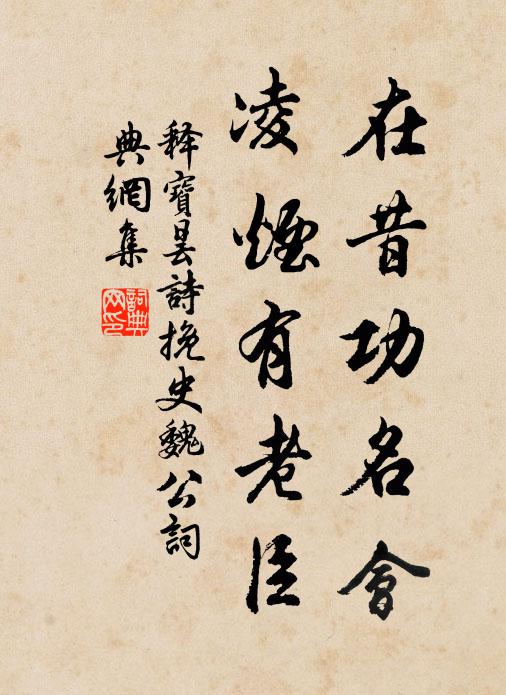 在昔功名會
凌煙有老臣
释寶曇詩挽史魏公詞
典網集
詞典網印